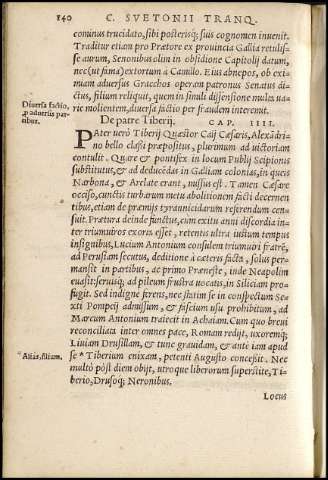 140 C. SVETONII TRANQ.
cominus trucidato, sibi posterisq; suis cognomen inuenit.
Traditur etiam pro Prætore ex prouincia Gallia retulis-
se aurum, Senonibus olim in obsidione Capitolij datum,
nec (ut fama) extortum à Camillo. Eius abnepos, ob exi-
miam aduersus Gracchos operam patronus Senatus di-
ctus, filium reliquit, quem in simili dissensione multa ua-
riè molientem, diuersa factio per fraudem interemit.
Diuersa factio,
p aduersis par-
tibus.
De patre Tiberij. CAP. IIII.
PAter uerò Tiberij Quæstor Caij Cæsaris, Alexādri-
no bello classi præpositus, plurimum ad uictoriam
contulit. Quare & pontifex in locum Publij Scipionis
substitutus, & ad deducēdas in Galliam colonias, in queis
Narbona, & Arelate erant, missus est. Tamen Cæsare
occiso, cunctis turbarum metu abolitionem facti decernen
tibus, etiam de præmijs tyrannicidarum referendum cen-
suit. Prætura deinde functus, cum exitu anni discordia in-
ter triumuiros exorta esset, retentis ultra iustum tempus
insignibus, Lucium Antonium consulem triumuiri fratrē,
ad Perusiam secutus, deditione à cæteris facta, solus per-
mansit in partibus, ac primo Præneste, inde Neapolim
euasit: seruisq; ad pileum frustra uocatis, in Siciliam pro-
fugit. Sed indignè ferens, nec statim se in conspectum Se-
xti Pompeij admissum, & fascium usu prohibitum, ad
Marcum Antonium traiecit in Achaiam. Cum quo breui
reconciliata inter omnes pace, Romam redijt, uxoremq;
Liuiam Drusillam, & tunc grauidam, & ante iam apud
se * Tiberium enixam, petenti Augusto concessit. Nec
Aliàs, filium.
multò pòst diem obijt, utroque liberorum superstite, Ti-
berio, Drusoq; Neronibus.
Locus